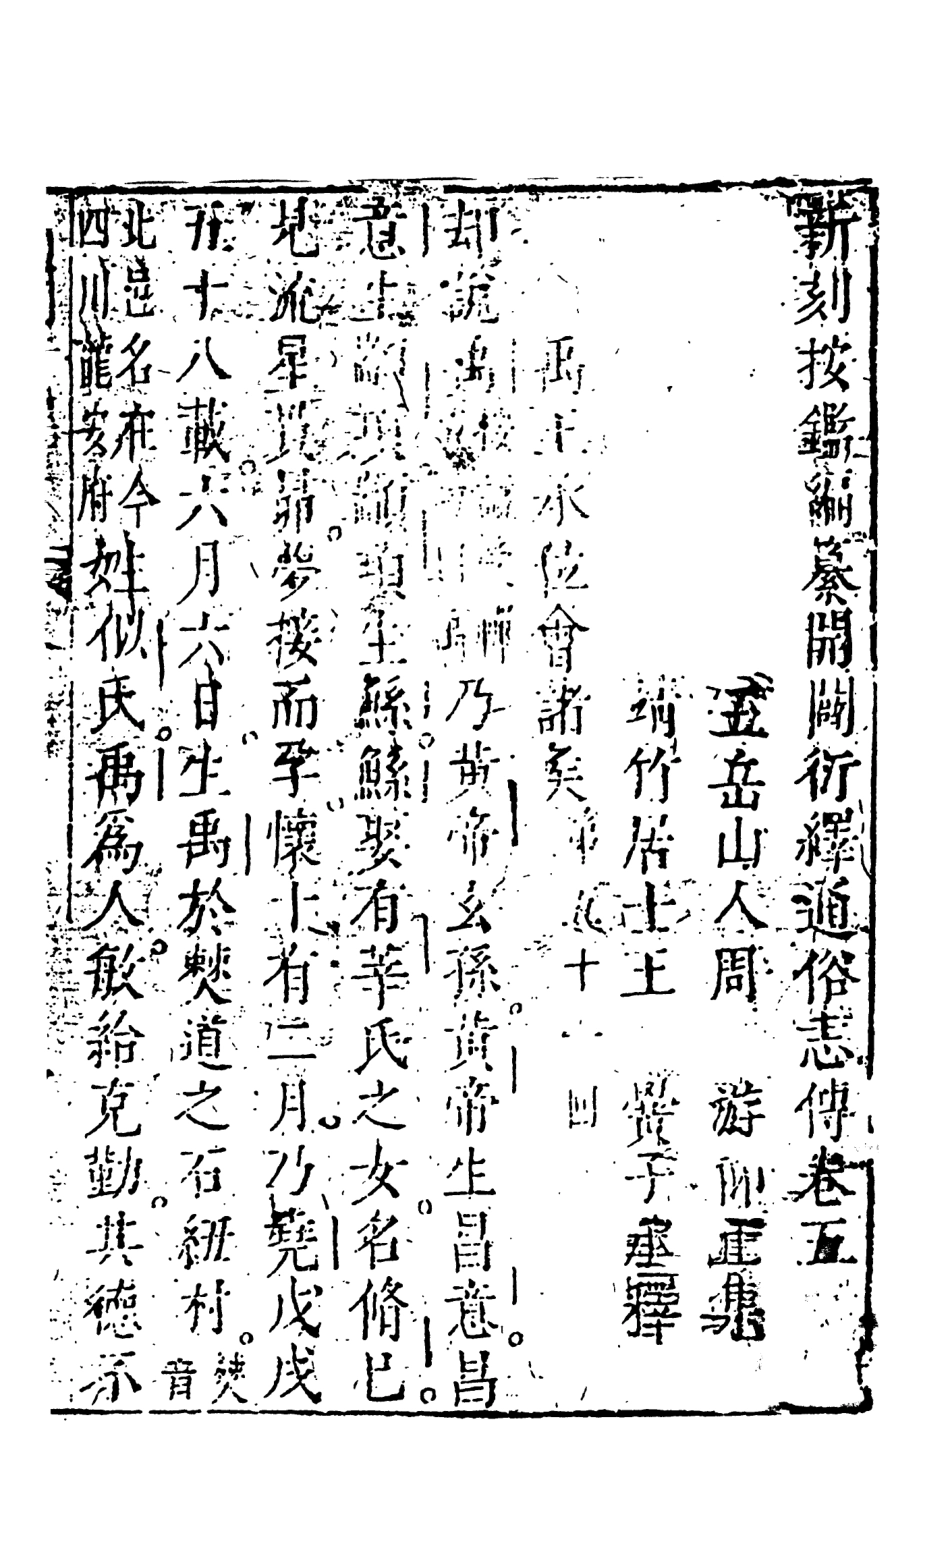 新刻按鑑編纂開闢衍繹通俗志傳卷五
五岳山人周 游仰止集
靖竹居士王 黌子承釋
禹王水位會諸矦 十 回
却說禹 乃黄帝玄孫黄帝生昌意昌
意生顓頊顓頊生鯀鯀娶有莘氏之女名脩巳
見流星貫昴夢接而孕懷十有二月乃堯戊戌
五十八載六月六日生禹於僰道之石紐村僰音
北邑名在今
四川龍安府
姓姒氏禹為人敏給克勤其德不